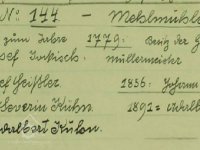 No: 144 - Mehlmühle
zum Jahre 1779: Besitz der G
sef Jorkisch: müllermeister
ef Geißler 1836: Johann
Severin Kühn. 1891 = Adalb
dalbert Kühn.